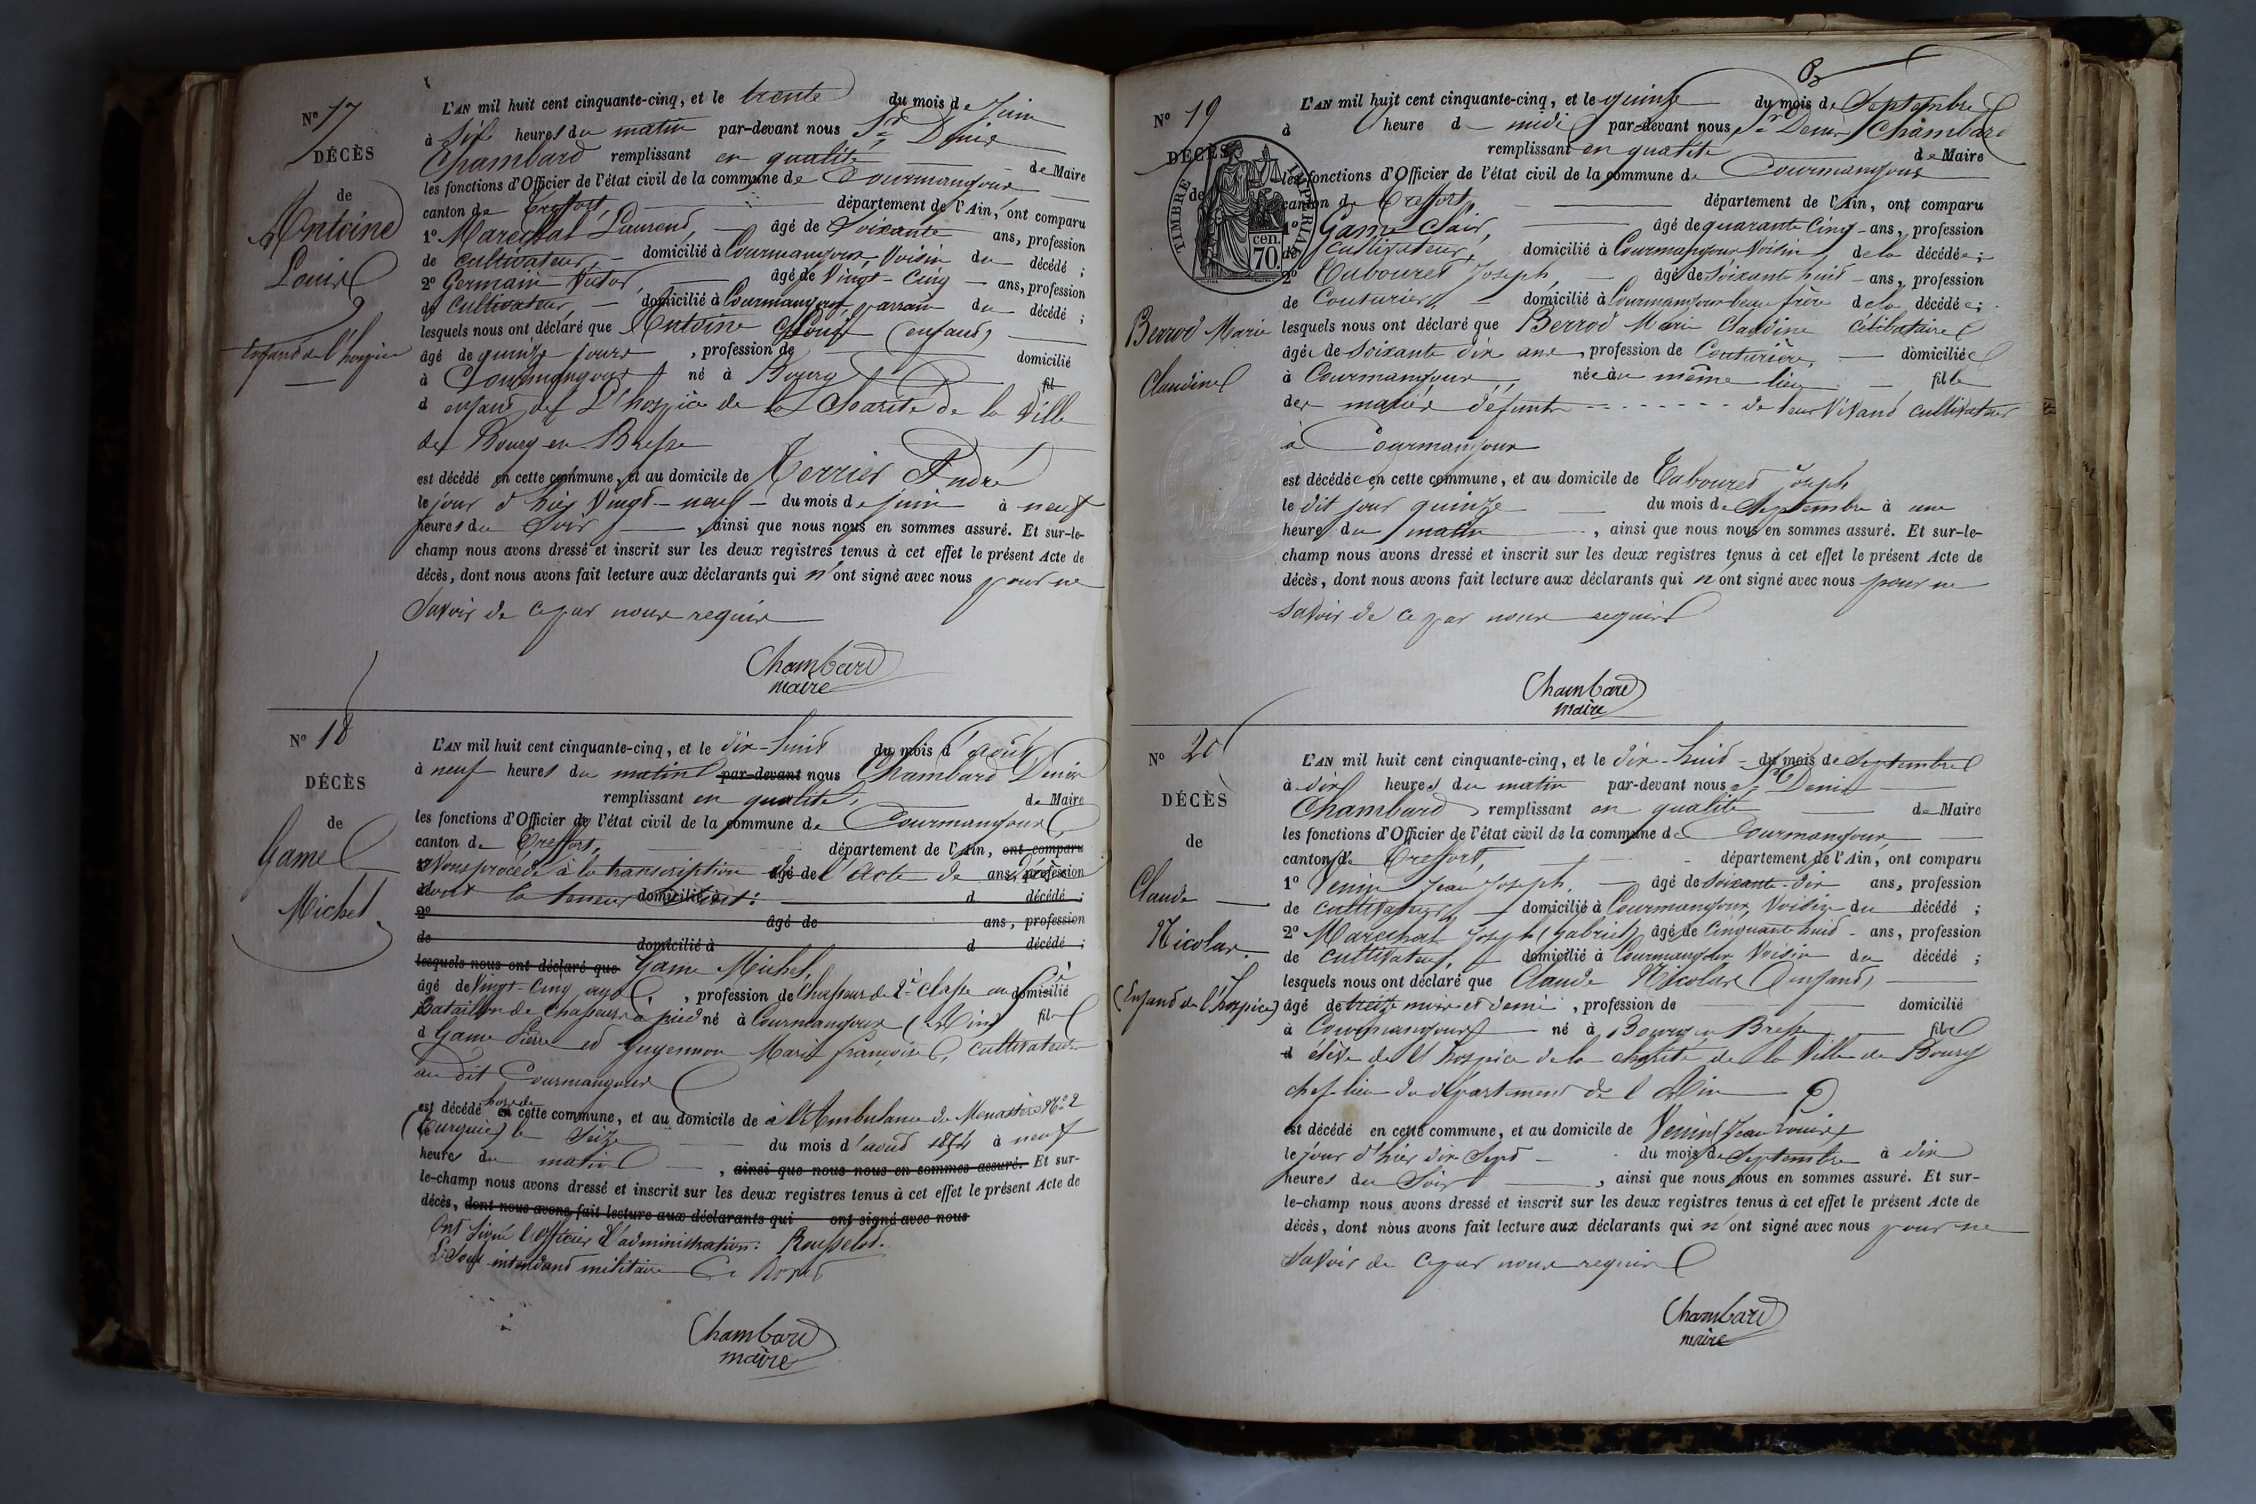 N° 17
DÉCÈS
de
Antoine
Louis
Enfant de l'hospice
L'AN mil huit cent cinquante-cinq, et le trente du mois de Juin
à Six heures du matin par-devant nous Sr Denis
Chambard remplissant en qualité de Maire
les fonctions d'Officier de l'état civil de la commune de Courmangoux
canton de Treffort, département de l'Ain, ont comparu
1° Marechal Laurent, âgé de Soixante ans, profession
de cultivateur, domicilié à Courmangoux, Voisin du décédé ;
2° Germain Victor, âgé de Vingt-Cinq ans, profession
de Cultivateur, domicilié à Courmangoux, parrain du décédé ;
lesquels nous ont déclaré que Antoine Louis (enfant)
âgé de quinze jours, profession de domicilié
à Courmangoux né à Bourg fil
d enfant de l'hospice de la Charité de la Ville
de Bourg en Bresse
est décédé en cette commune, et au domicile de Terrier André
le jour d'hier Vingt-neuf du mois de juin à neuf
heures du Soir, ainsi que nous nous en sommes assuré. Et sur-le-
champ nous avons dressé et inscrit sur les deux registres tenus à cet effet le présent Acte de
décès, dont nous avons fait lecture aux déclarants qui n'ont signé avec nous pour ne
Savoir de ce par nous requis
Chambard
maire
N° 18
DÉCÈS
de
Game
Michel
L'AN mil huit cent cinquante-cinq, et le dix-huit du mois d'août
à neuf heures du matin par-devant nous Chambard Denis
remplissant en qualité, de Maire
les fonctions d'Officier de l'état civil de la commune de Courmangoux
canton de Treffort, département de l'Ain, ont comparu
1° Nous procédé à la transcription âgé de l'Acte de ans, profession
dont la teneur domicilié à suit : d décédé ;
2° âgé de ans, profession
de domicilié à d décédé ;
lesquels nous ont déclaré que Game Michel,
âgé de Vingt-Cinq ans, profession de Chasseur de 2e Classe au domicilié
Bataillon de Chasseurs à pied né à Courmangoux (Ain) fils
d Game Pierre et Guyennon Marie françoise, cultivateurs
au dit Courmangoux
est décédé hors de en cette commune, et au domicile de à l'Ambulance du Monastère N° 2
(Turquie) le Seize du mois d'août 1854 à neuf
heures du matin, ainsi que nous nous en sommes assuré. Et sur-
le-champ nous avons dressé et inscrit sur les deux registres tenus à cet effet le présent Acte de
décès, dont nous avons fait lecture aux déclarants qui ont signé avec nous
Ont Signé l'officier d'administration : Rousselot.
Le Sous intendant militaire
Chambard
maire
N° 19
DÉCÈS
de
TIMBRE IMPÉRIAL
cen.
70.
Berrod Marie
Claudine
L'AN mil huit cent cinquante-cinq, et le quinze du mois de Septembre
à heure d midi par-devant nous Sr Denis Chambard
remplissant en qualité de Maire
les fonctions d'Officier de l'état civil de la commune de Courmangoux
canton de Treffort, département de l'Ain, ont comparu
1° Game Clair, âgé de quarante Cinq ans, profession
de Cultivateur, domicilié à Courmangoux Voisin de la décédée ;
2° Tabouret Joseph, âgé de Soixante huit ans, profession
de Couturier domicilié à Courmangoux beau frère de la décédée ;
lesquels nous ont déclaré que Berrod Marie Claudine Célibataire
âgée de Soixante dix ans, profession de Couturière, domiciliée
à Courmangoux, née au même lieu fille
des mariés défunts de leur Vivant cultivateurs
à Courmangoux
est décédée en cette commune, et au domicile de Tabouret Joseph
le dit jour quinze du mois de Septembre à une
heure du matin, ainsi que nous nous en sommes assuré. Et sur-le-
champ nous avons dressé et inscrit sur les deux registres tenus à cet effet le présent Acte de
décès, dont nous avons fait lecture aux déclarants qui n ont signé avec nous pour ne
savoir de ce par nous requis
Chambard
maire
N° 20
DÉCÈS
de
Claude
Nicolas
(Enfant de l'hospice)
L'AN mil huit cent cinquante-cinq, et le dix-huit du mois de Septembre
à dix heures du matin par-devant nous Sr Denis
Chambard remplissant en qualité de Maire
les fonctions d'Officier de l'état civil de la commune de Courmangoux
canton de Treffort, département de l'Ain, ont comparu
1° Venin Jean Joseph, âgé de Soixante-dix ans, profession
de cultivateur, domicilié à Courmangoux, Voisin du décédé ;
2° Marechal Joseph (Gabriel) âgé de Cinquante huit ans, profession
de cultivateur, domicilié à Courmangoux Voisin du décédé ;
lesquels nous ont déclaré que Claude Nicolas (enfant)
âgé de treize mois et demi, profession de domicilié
à Courmangoux né à Bourg en Bresse fils
d élève de l'hospice de la charité de la Ville de Bourg
chef lieu du département de l'Ain
est décédé en cette commune, et au domicile de Venin (Jean Louis)
le jour d'hier dix Sept du mois de Septembre à dix
heures du Soir, ainsi que nous nous en sommes assuré. Et sur-
le-champ nous avons dressé et inscrit sur les deux registres tenus à cet effet le présent Acte de
décès, dont nous avons fait lecture aux déclarants qui n'ont signé avec nous pour ne
Savoir de ce par nous requis
Chambard
maire